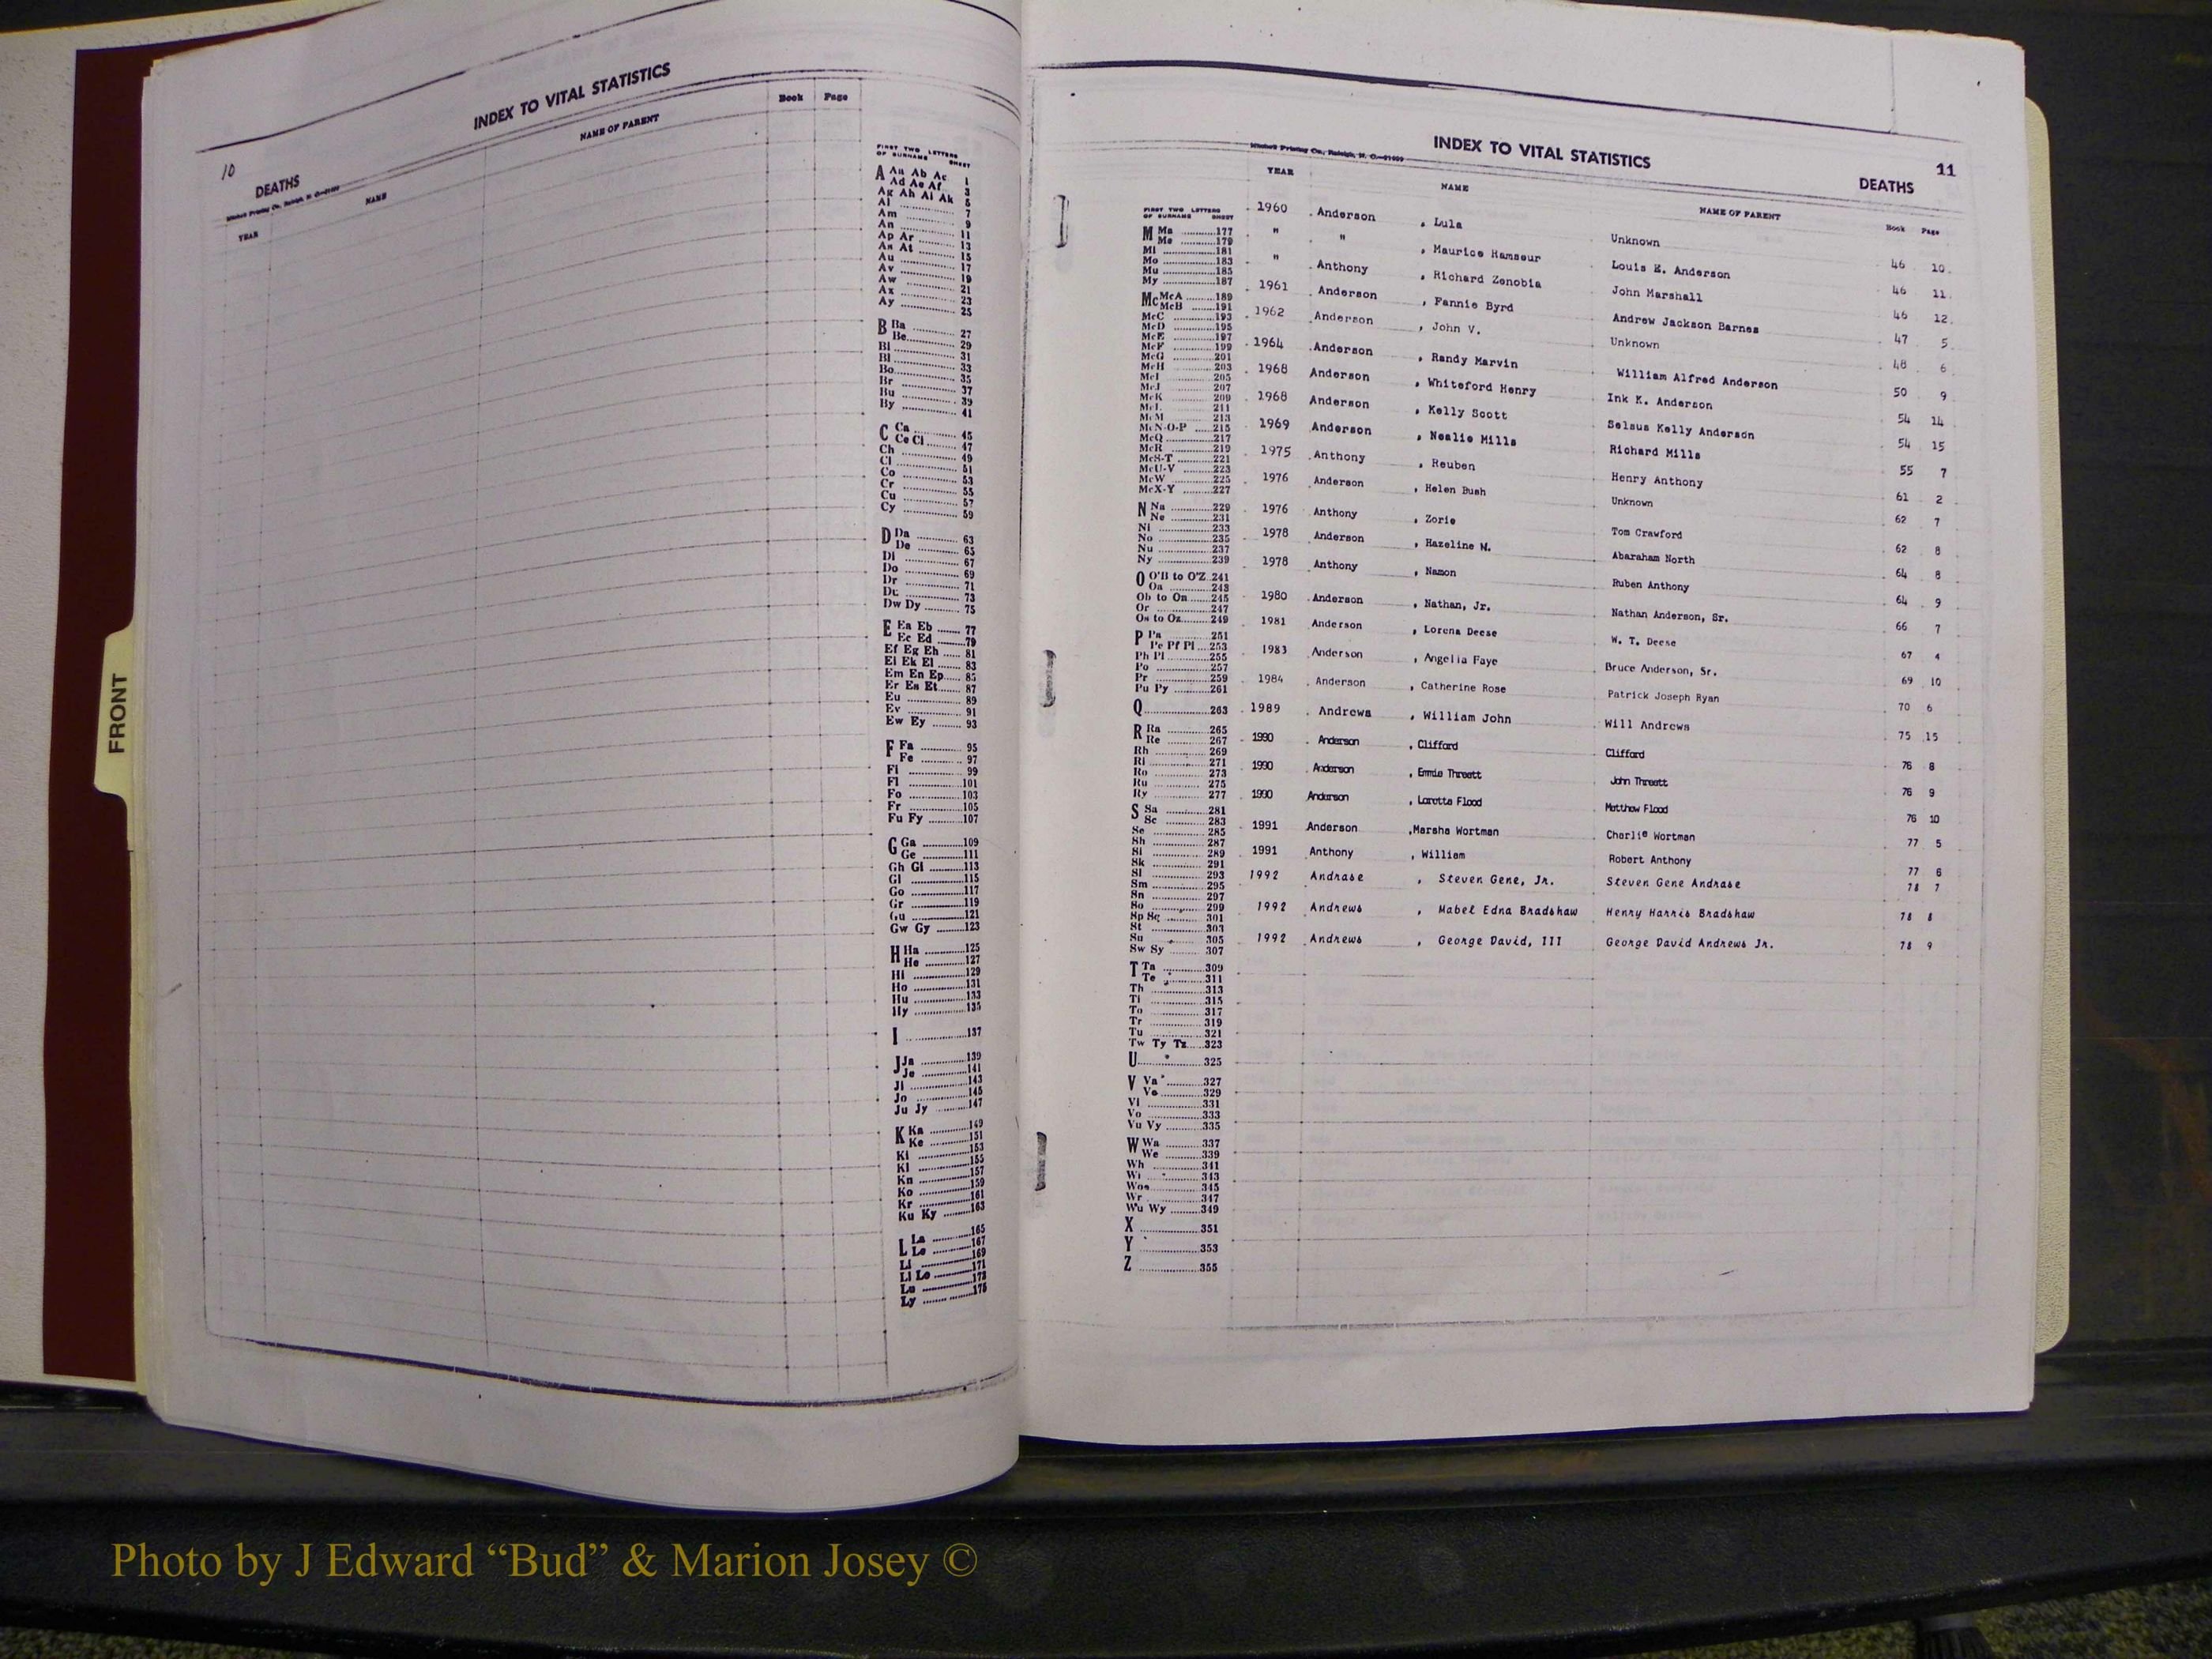 10
INDEX TO VITAL STATISTICS
DEATHS
YEAR NAME NAME OF PARENT Book Page
FIRST TWO LETTERS
OF SURNAME SHEET
A Aa Ab Ac 1
Ad Ae Af 3
Ag Ah Ai Ak 5
Al 7
Am 9
An 11
Ap Ar 13
As At 15
Au 17
Av 19
Aw 21
Ax 23
Ay 25
B Ba 27
Be 29
Bi 31
Bl 33
Bo 35
Br 37
Bu 39
By 41
C Ca 45
Ce Ci 47
Ch 49
Cl 51
Co 53
Cr 55
Cu 57
Cy 59
D Da 63
De 65
Di 67
Do 69
Dr 71
Du 73
Dw Dy 75
E Ea Eb 77
Ec Ed 79
Ef Eg Eh 81
Ei Ek El 83
Em En Ep 85
Er Es Et 87
Eu 89
Ev 91
Ew Ey 93
F Fa 95
Fe 97
Fi 99
Fl 101
Fo 103
Fr 105
Fu Fy 107
G Ga 109
Ge 111
Gh Gi 113
Gl 115
Go 117
Gr 119
Gu 121
Gw Gy 123
H Ha 125
He 127
Hi 129
Ho 131
Hu 133
Hy 135
I 137
J Ja 139
Je 141
Ji 143
Jo 145
Ju Jy 147
K Ka 149
Ke 151
Ki 153
Kl 155
Kn 157
Ko 159
Kr 161
Ku Ky 163
L La 165
Le 167
Li 169
Ll Lo 171
Lu 173
Ly 175
FRONT
INDEX TO VITAL STATISTICS
11
Mitchell Printing Co., Raleigh, N. C.
DEATHS
YEAR NAME NAME OF PARENT Book Page
FIRST TWO LETTERS
OF SURNAME SHEET
M Ma 177
Me 179
Mi 181
Mo 183
Mu 185
My 187
Mc McA 189
McB 191
McC 193
McD 195
McE 197
McF 199
McG 201
McH 203
McI 205
McJ 207
McK 209
McL 211
McM 213
McN-O-P 215
McQ 217
McR 219
McS-T 221
McU-V 223
McW 225
McX-Y 227
N Na 229
Ne 231
Ni 233
No 235
Nu 237
Ny 239
O O'B to O'Z 241
Oa 243
Ob to On 245
Or 247
Os to Oz 249
P Pa 251
Pe Pf Pl 253
Ph Pi 255
Po 257
Pr 259
Pu Py 261
Q 263
R Ra 265
Re 267
Rh 269
Ri 271
Ro 273
Ru 275
Ry 277
S Sa 281
Sc 283
Se 285
Sh 287
Si 289
Sk 291
Sl 293
Sm 295
Sn 297
So 299
Sp Sq 301
St 303
Su 305
Sw Sy 307
T Ta 309
Te 311
Th 313
Ti 315
To 317
Tr 319
Tu 321
Tw Ty Tz 323
U 325
V Va 327
Ve 329
Vi 331
Vo 333
Vu Vy 335
W Wa 337
We 339
Wh 341
Wi 343
Woo 345
Wr 347
Wu Wy 349
X 351
Y 353
Z 355
1960 Anderson , Lula Unknown 46 10
" " , Maurice Ramseur Louis E. Anderson 46 11
" Anthony , Richard Zenobia John Marshall 46 12
1961 Anderson , Fannie Byrd Andrew Jackson Barnes 47 5
1962 Anderson , John V. Unknown 48 6
1964 Anderson , Randy Marvin William Alfred Anderson 50 9
1968 Anderson , Whiteford Henry Ink K. Anderson 54 14
1968 Anderson , Kelly Scott Selsus Kelly Anderson 54 15
1969 Anderson , Nealie Mills Richard Mills 55 7
1975 Anthony , Reuben Henry Anthony 61 2
1976 Anderson , Helen Bush Unknown 62 7
1976 Anthony , Zorie Tom Crawford 62 8
1978 Anderson , Hazeline N. Abaraham North 64 8
1978 Anthony , Namon Ruben Anthony 64 9
1980 Anderson , Nathan, Jr. Nathan Anderson, Sr. 66 7
1981 Anderson , Lorena Deese W. T. Deese 67 4
1983 Anderson , Angelia Faye Bruce Anderson, Sr. 69 10
1984 Anderson , Catherine Rose Patrick Joseph Ryan 70 6
1989 Andrews , William John Will Andrews 75 15
1990 Anderson , Clifford Clifford 76 8
1990 Anderson , Emmie Threatt John Threatt 76 9
1990 Anderson , Loretta Flood Matthew Flood 76 10
1991 Anderson ,Marsha Wortman Charlie Wortman 77 5
1991 Anthony , William Robert Anthony 77 6
1992 Andrase , Steven Gene, Jr. Steven Gene Andrase 78 7
1992 Andrews , Mabel Edna Bradshaw Henry Harris Bradshaw 78 8
1992 Andrews , George David, III George David Andrews Jr. 78 9
Photo by J Edward “Bud” & Marion Josey ©